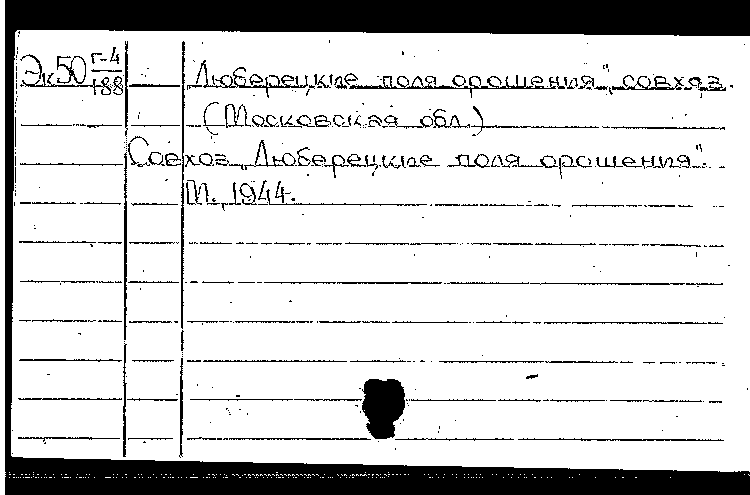 Эк50 г-4/188 Люберецкие поля орошения", совхоз.
(Московская обл.)
Совхоз „Люберецкие поля орошения".
М., 1944.